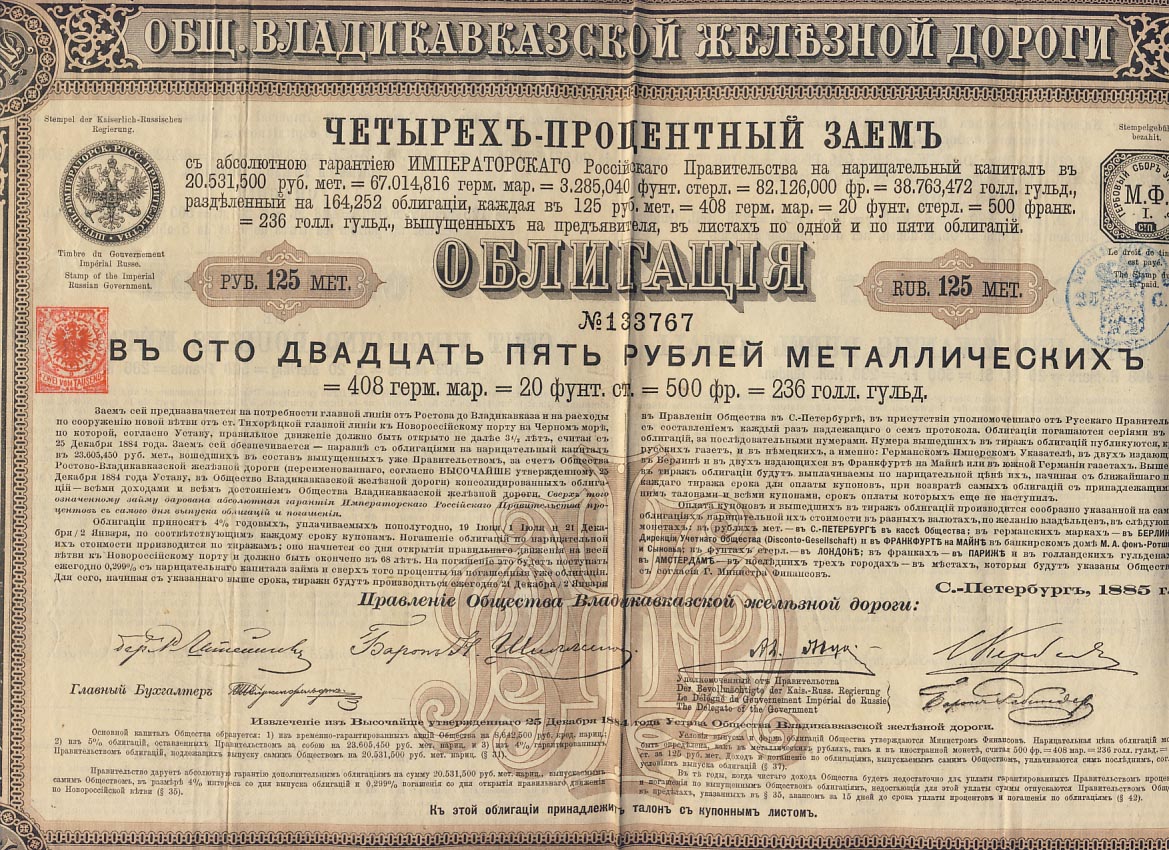 ОБЩ. ВЛАДИКАВКАЗСКОЙ ЖЕЛѢЗНОЙ ДОРОГИ
Stempel der Kaiserlich-Russischen
Regierung.
ЧЕТЫРЕХЪ-ПРОЦЕНТНЫЙ ЗАЕМЪ
Stempelgebüh
bezahlt.
съ абсолютною гарантіею ИМПЕРАТОРСКАГО Россійскаго Правительства на нарицательный капиталъ въ
20.531,500 руб. мет. = 67.014,816 герм. мар. = 3.285,040 фунт. стерл. = 82.126,000 фр. = 38.763,472 голл. гульд.,
раздѣленный на 164,252 облигаціи, каждая въ 125 руб. мет. = 408 герм. мар. = 20 фунт. стерл. = 500 франк.
= 236 голл. гульд., выпущенныхъ на предъявителя, въ листахъ по одной и по пяти облигацій.
М.Ф.
I.
СП.
Timbre du Gouvernement
Impérial Russe.
Stamp of the Imperial
Russian Government.
Le droit de ti
est payé.
The Stamp du
is paid.
ОБЛИГАЦІЯ
РУБ. 125 МЕТ.
RUB. 125 МЕТ.
№133767
ВЪ СТО ДВАДЦАТЬ ПЯТЬ РУБЛЕЙ МЕТАЛЛИЧЕСКИХЪ
= 408 герм. мар. = 20 фунт. ст. = 500 фр. = 236 голл. гульд.
ZWEI VOM TAUSEND
Заемъ сей предназначается на потребности главной линіи отъ Ростова до Владикавказа и на расходы
по сооруженію новой вѣтви отъ ст. Тихорѣцкой главной линіи къ Новороссійскому порту на Черномъ морѣ,
по которой, согласно Уставу, правильное движеніе должно быть открыто не далѣе 3½ лѣтъ, считая съ
25 Декабря 1884 года. Заемъ сей обезпечивается — наравнѣ съ облигаціями на нарицательный капиталъ
въ 23.605,450 руб. мет., вошедшихъ въ составъ выпущенныхъ уже Правительствомъ, за счетъ Общества
Ростово-Владикавказской желѣзной дороги (переименованнаго, согласно ВЫСОЧАЙШЕ утвержденному 25
Декабря 1884 года Уставу, въ Общество Владикавказской желѣзной дороги) консолидированныхъ облига-
цій — всѣми доходами и всѣмъ достояніемъ Общества Владикавказской желѣзной дороги. Сверхъ того
означенному займу дарована абсолютная гарантія Императорскаго Россійскаго Правительства про-
центовъ съ самого дня выпуска облигацій и погашенія.
Облигаціи приносятъ 4% годовыхъ, уплачиваемыхъ пополугодно, 19 Іюня/1 Іюля и 21 Дека-
бря/2 Января, по соотвѣтствующимъ каждому сроку купонамъ. Погашеніе облигацій по нарицательной
ихъ стоимости производится по тиражамъ; оно начнется со дня открытія правильнаго движенія по всей
вѣтви къ Новороссійскому порту и должно быть окончено въ 68 лѣтъ. На погашеніе это будетъ поступать
ежегодно 0,299% съ нарицательнаго капитала займа и сверхъ того проценты на погашенныя уже облигаціи.
Для сего, начиная съ указаннаго выше срока, тиражи будутъ производиться ежегодно 21 Декабря/2 Января
въ Правленіи Общества въ С.-Петербургѣ, въ присутствіи уполномоченнаго отъ Русскаго Правитель
съ составленіемъ каждый разъ надлежащаго о семъ протокола. Облигаціи погашаются серіями въ
облигацій, за послѣдовательными нумерами. Нумера вышедшихъ въ тиражъ облигацій публикуются, к
русскихъ газетъ, и въ нѣмецкихъ, а именно: Германскомъ Имперскомъ Указателѣ, въ двухъ издающ
въ Берлинѣ и въ двухъ издающихся въ Франкфуртѣ на Майнѣ или въ южной Германіи газетахъ. Выше
въ тиражъ облигаціи будутъ выплачиваемы по нарицательной цѣнѣ ихъ, начиная съ ближайшаго п
каждаго тиража срока для оплаты купоновъ, при возвратѣ самыхъ облигацій съ принадлежащим
нимъ талонами и всѣми купонами, срокъ оплаты которыхъ еще не наступилъ.
Оплата купоновъ и вышедшихъ въ тиражъ облигацій производится сообразно указанной на сам
облигаціяхъ нарицательной ихъ стоимости въ разныхъ валютахъ, по желанію владѣльцевъ, въ слѣдую
монетахъ: въ рубляхъ мет. — въ С.-ПЕТЕРБУРГѢ въ кассѣ Общества; въ германскихъ маркахъ — въ БЕРЛИН
Дирекціи Учетнаго Общества (Disconto-Gesellschaft) и въ ФРАНКФУРТѢ на МАЙНѢ въ банкирскомъ домѣ М. А. фонъ-Ротш
и Сыновья; въ фунтахъ стерл. — въ ЛОНДОНѢ; въ франкахъ — въ ПАРИЖѢ и въ голландскихъ гульденах
въ АМСТЕРДАМѢ — въ послѣднихъ трехъ городахъ — въ мѣстахъ, которыя будутъ указаны Обществ
съ согласія Г. Министра Финансовъ.
С.-Петербургъ, 1885 г
Правленіе Общества Владикавказской желѣзной дороги:
Главный Бухгалтеръ
Уполномоченный отъ Правительства
Der Bevollmächtigte der Kais.-Russ. Regierung
Le Délégué du Gouvernement Impérial de Russie
The Delegate of the Government
Извлеченіе изъ Высочайше утвержденнаго 25 Декабря 1884 года Устава Общества Владикавказской желѣзной дороги.
Основной капиталъ Общества образуется: 1) изъ временно-гарантированныхъ акцій Общества на 8,642,500 руб. кред. нариц.;
2) изъ 5% облигацій, оставленныхъ Правительствомъ за собою на 23.605,450 руб. мет. нариц. и 3) изъ 4% гарантированныхъ
Правительствомъ облигацій, подлежащихъ выпуску самимъ Обществомъ на 20.531,500 руб. мет. нариц. (§ 31).
Правительство даруетъ абсолютную гарантію дополнительнымъ облигаціямъ на сумму 20.531,500 руб. мет. нариц., выпускаемымъ
самимъ Обществомъ, въ размѣрѣ 4% интереса со дня выпуска облигацій и 0,299% погашенія со дня открытія правильнаго движенія
по Новороссійской вѣтви (§ 35).
Условія выпуска и форма облигацій Общества утверждаются Министромъ Финансовъ. Нарицательная цѣна облигацій мо
быть опредѣлена, какъ въ металлическихъ рубляхъ, такъ и въ иностранной монетѣ, считая 500 фр. = 408 мар. = 236 голл. гульд. =
за 125 руб. мет. Доходъ и погашеніе по облигаціямъ, выпускаемымъ самимъ Обществомъ, уплачиваются симъ послѣднимъ, сог
условіямъ выпуска облигацій (§ 37).
Въ тѣ годы, когда чистаго дохода Общества будетъ недостаточно для уплаты гарантированныхъ Правительствомъ процен
и погашенія по выпущеннымъ Обществомъ облигаціямъ, недостающія для этой уплаты суммы отпускаются Правительствомъ Общ
въ предѣлахъ, указанныхъ въ § 35, авансомъ за 15 дней до срока уплаты процентовъ и погашенія по облигаціямъ (§ 42).
Къ этой облигаціи принадлежитъ талонъ съ купоннымъ листомъ.